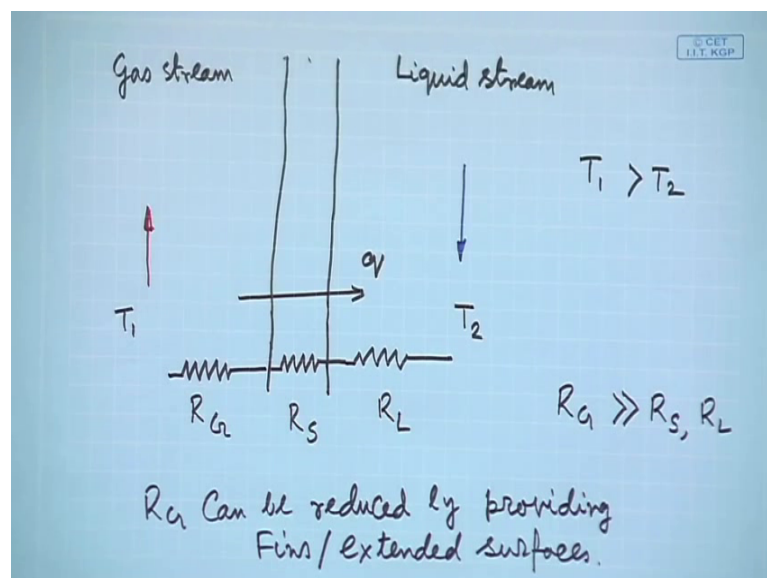 © CET
I.I.T. KGP
Gas stream
Liquid stream
T₁ > T₂
q
T₁
T₂
R_G
R_S
R_L
R_G >> R_S, R_L
R_G Can be reduced by providing
Fins / extended surfaces.